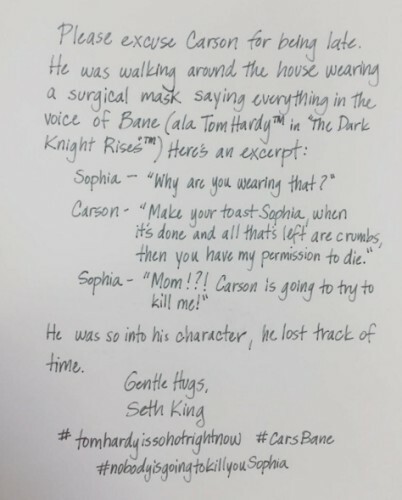 Please excuse Carson for being late.
He was walking around the house wearing
a surgical mask saying everything in the
voice of Bane (ala Tom Hardy™ in "The Dark
Knight Rises"™) Here's an excerpt:
Sophia - "Why are you wearing that?"
Carson - "Make your toast Sophia, when
it's done and all that's left are crumbs,
then you have my permission to die."
Sophia - "Mom!?! Carson is going to try to
kill me!"
He was so into his character, he lost track of
time.
Gentle Hugs,
Seth King
#tomhardyissohotrightnow #CarsBane
#nobodyisgoingtokillyouSophia